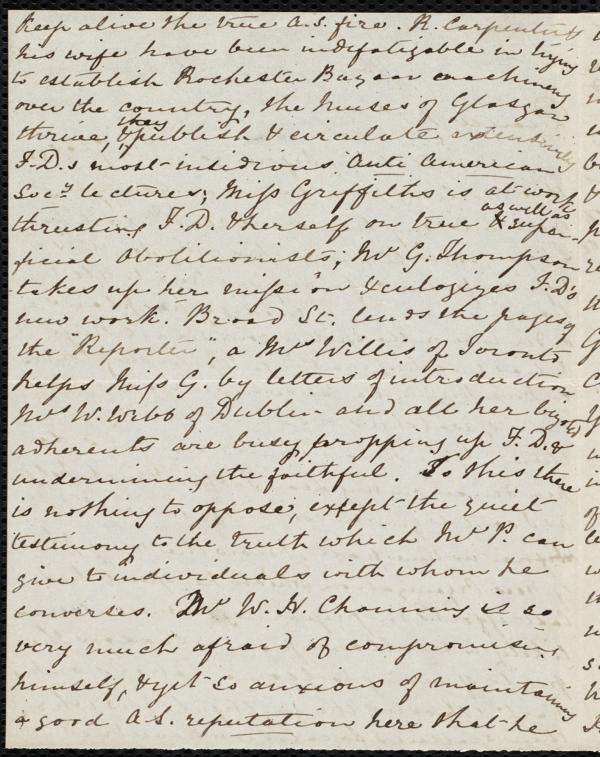 Keep alive the true A.S. fire. R. Carpenter &
his wife have been indefatigable in trying
to establish Rochester Bazaar machinery
over the country, the Muses of Glasgow
thrive, & they publish & circulate extensively
F.D.s most insidious Anti American
Socy lectures; Miss Griffiths is at work
thrusting F.D. & herself on true as well as & super-
ficial Abolitionists; Mr G. Thompson
takes up her mission & eulogizes F.D's
new work. Broad St. lends the pages of
the "Reporter", a Mrs Willis of Toronto
helps Miss G. by letters of introduction
Mrs W. Webb of Dublin and all her
adherents are busy propping up F.D. &
undermining the faithful. To this there
is nothing to oppose, except the quiet
testimony to the truth which Mr P. can
give to individuals with whom he
converses. Mr W. H. Channing is so
very much afraid of compromising
himself, & yet so anxious of maintaining
a good A.S. reputation here that he